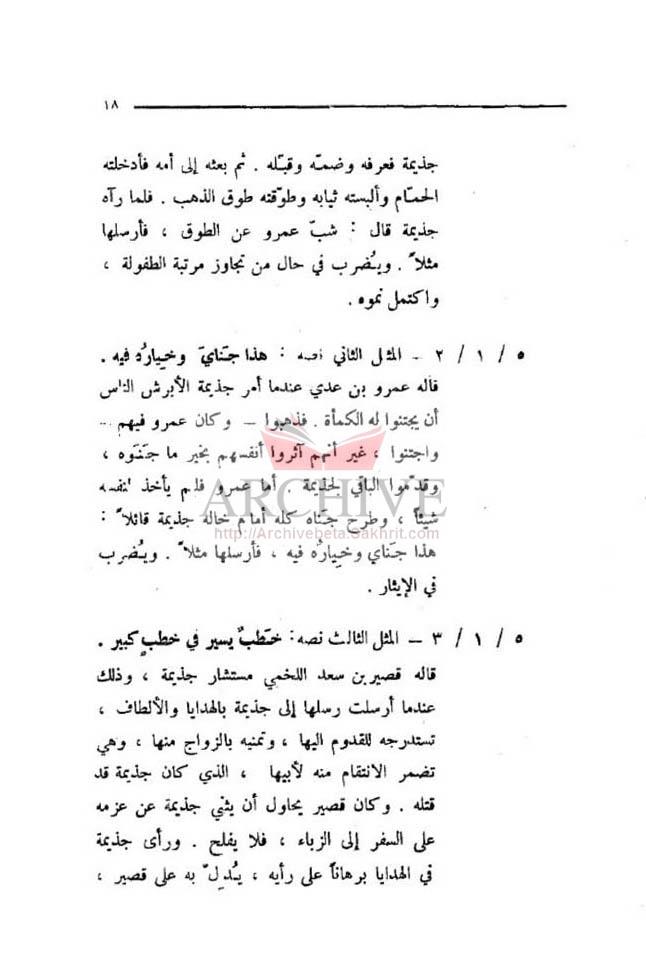 ١٨
جذيمة فعرفه وضمّه وقبّله . ثم بعثه إلى أمه فأدخلته
الحمّام وألبسته ثيابه وطوّقته طوق الذهب . فلما رآه
جذيمة قال : شبّ عمرو عن الطوق ، فأرسلها
مثلاً . ويُضرب في حال من تجاوز مرتبة الطفولة ،
واكتمل نموه .
٥ / ١ / ٢ – المثل الثاني نصه : هذا جَنايَ وخِيارُه فيه .
قاله عمرو بن عدي عندما أمر جذيمة الأبرش الناس
أن يجتنوا له الكمأة . فذهبوا – وكان عمرو فيهم –
واجتنوا ، غير أنهم آثروا أنفسهم بخير ما جَنَوه ،
وقدّموا الباقي لجذيمة . أما عمرو فلم يأخذ لنفسه
شيئاً ، وطرح جَناه كله أمام خاله جذيمة قائلاً :
هذا جَناي وخِيارُه فيه ، فأرسلها مثلاً . ويُضرب
في الإيثار .
٥ / ١ / ٣ – المثل الثالث نصه : خَطبٌ يسير في خطبٍ كبير .
قاله قصير بن سعد اللخمي مستشار جذيمة ، وذلك
عندما أرسلت رسلها إلى جذيمة بالهدايا والألطاف ،
تستدرجه للقدوم اليها ، وتمنيه بالزواج منها ، وهي
تضمر الانتقام منه لأبيها ، الذي كان جذيمة قد
قتله . وكان قصير يحاول أن يثني جذيمة عن عزمه
على السفر إلى الزباء ، فلا يفلح . ورأى جذيمة
في الهدايا برهاناً على رأيه ، يُدِلّ به على قصير ،
ARCHIVE
http://Archivebeta.Sakhrit.com